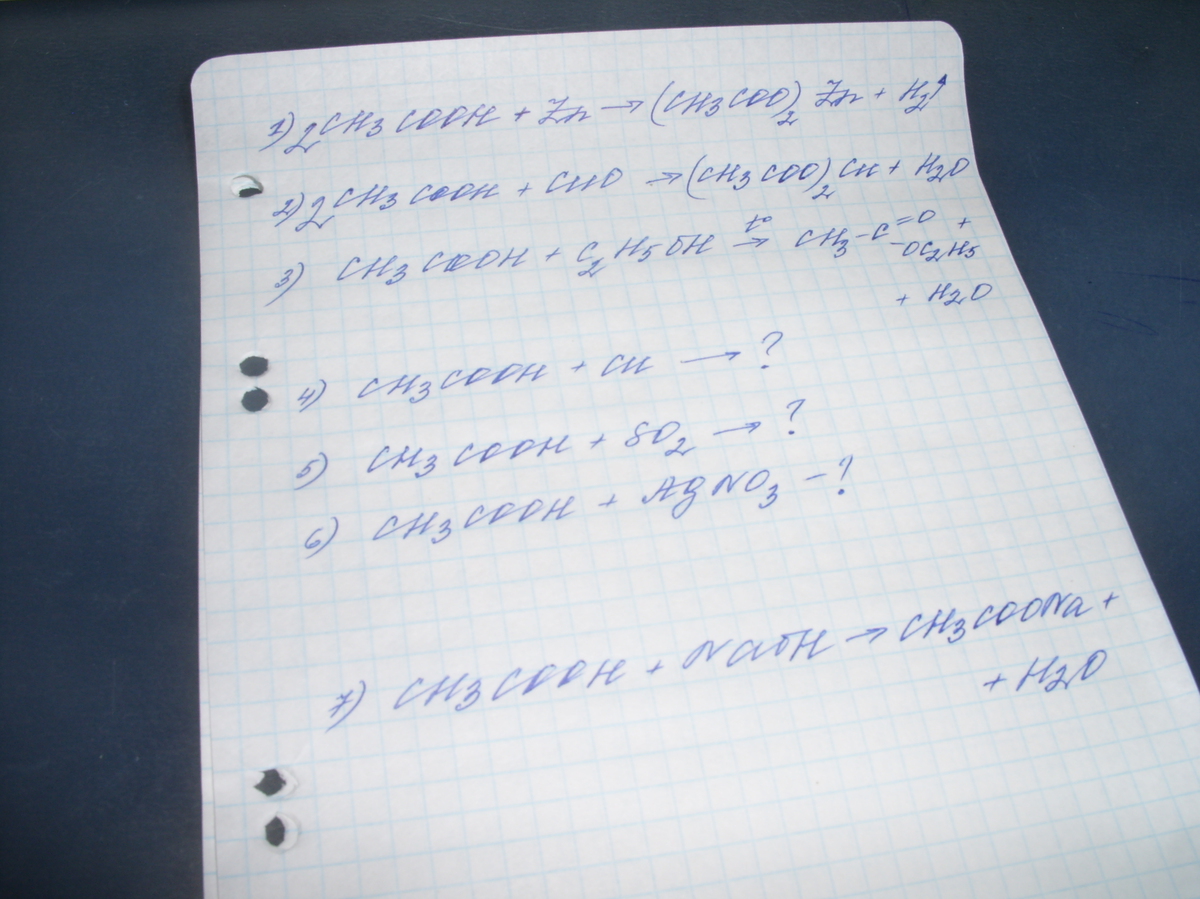 1) 2CH3COOH + Zn → (CH3COO)2 Zn + H2↑
2) 2CH3COOH + CuO → (CH3COO)2 Cu + H2O
3) CH3COOH + C2H5OH t°→ CH3-C=O +
-OC2H5
+ H2O
4) CH3COOH + Cu → ?
5) CH3COOH + SO2 → ?
6) CH3COOH + AgNO3 - ?
7) CH3COOH + NaOH → CH3COONa +
+ H2O